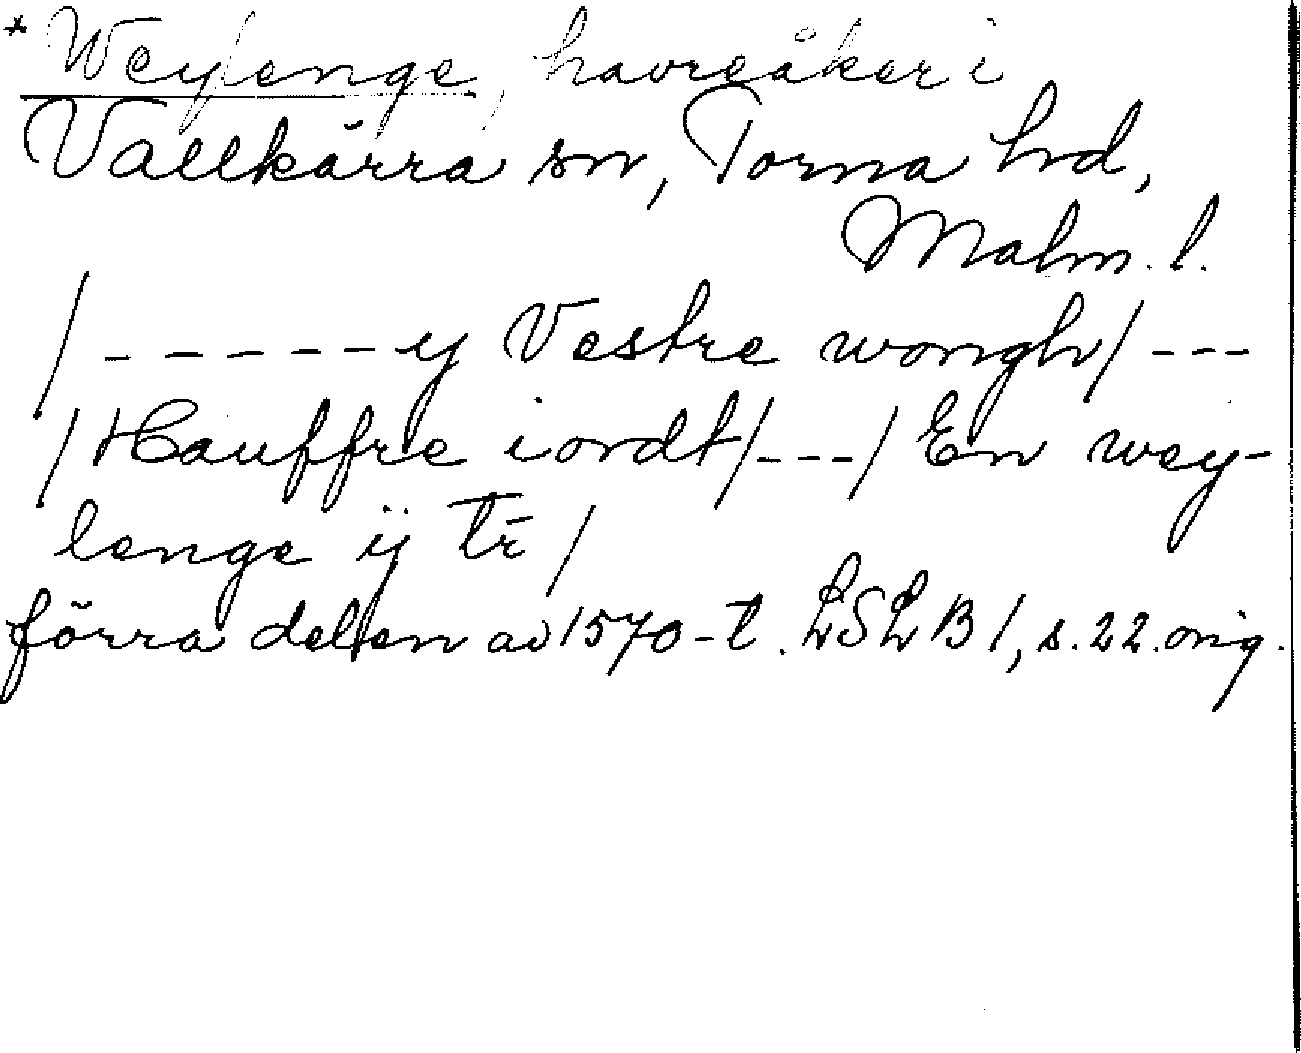 * Weylenge, havreåker i
Vallkärra sn, Torna hd,
Malm. l.
/ - - - - - y Vestre wongh / - - -
/ Hauffre iordt / - - - / En wey-
lenge ij tr̄ /
förra delen av 1570-t. LSLB 1, s. 22. orig.